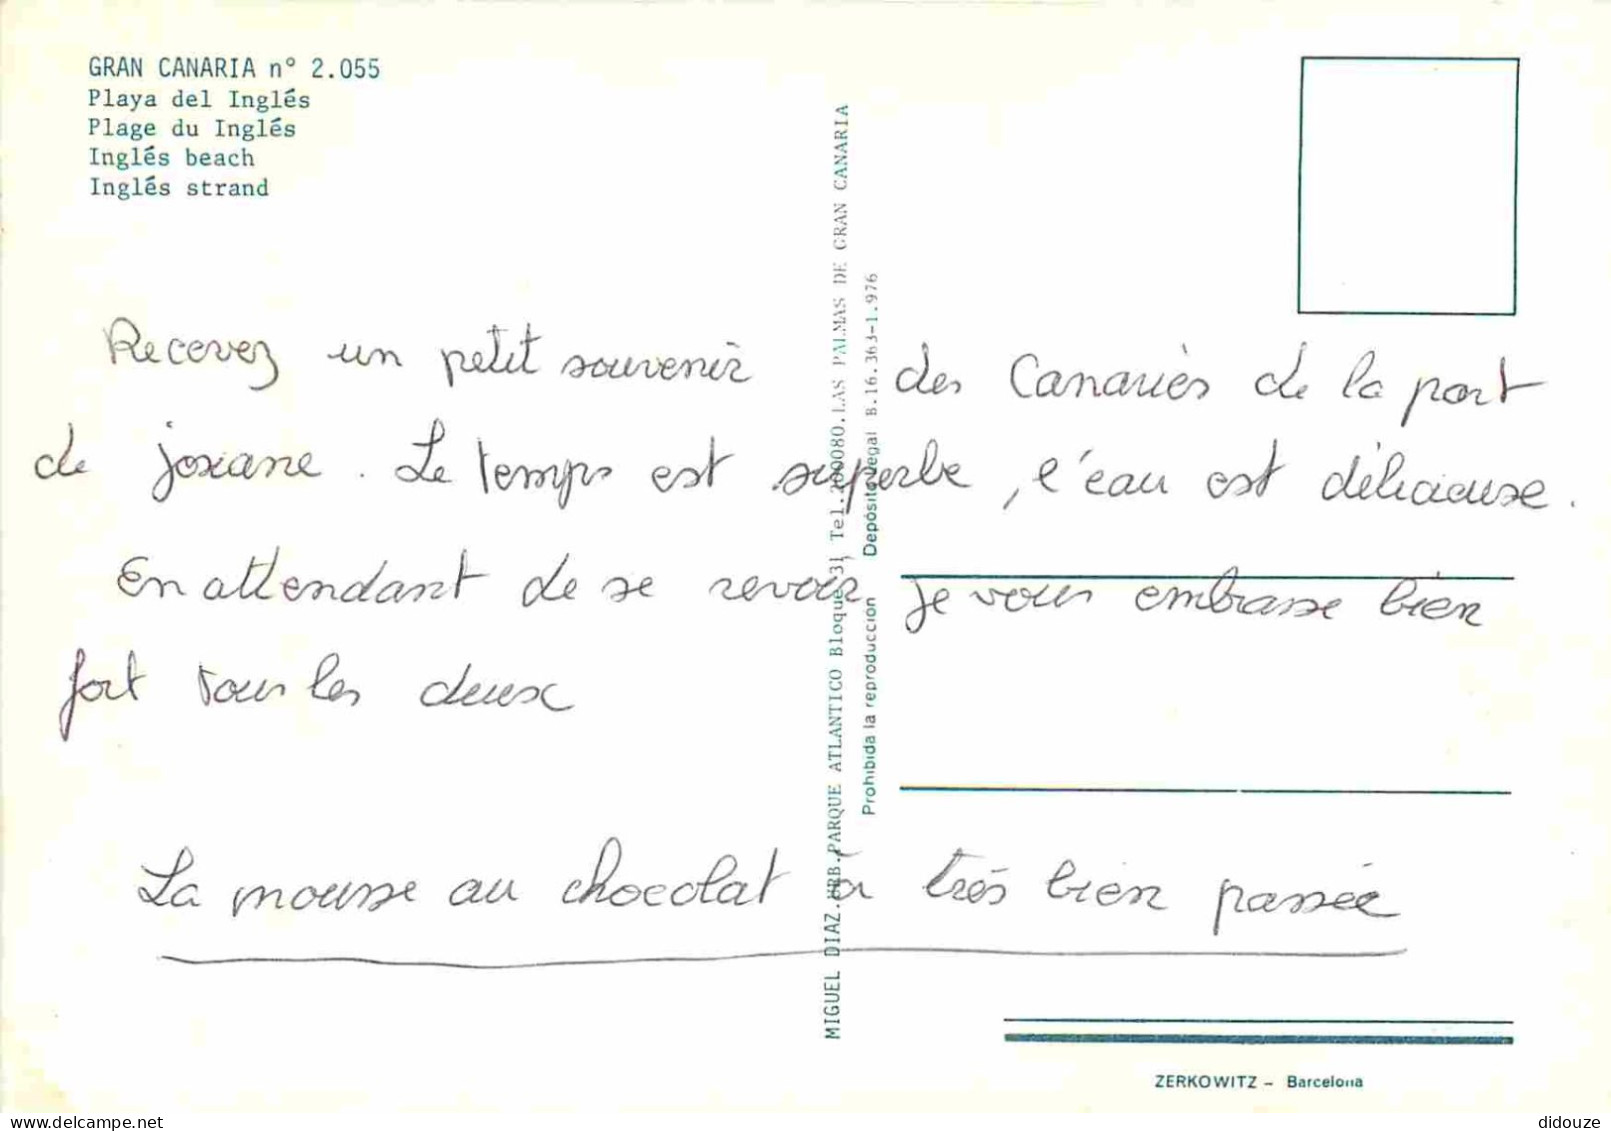 GRAN CANARIA nº 2.055
Playa del Inglés
Plage du Inglés
Inglés beach
Inglés strand
Recevez un petit souvenir des Canariès de la part
de joxane. Le temps est superbe, l'eau est délicieuse.
En attendant de se revoir je vous embrasse bien
fort tous les deux
La mousse au chocolat à très bien passée
MIGUEL DIAZ.URB.PARQUE ATLANTICO Bloque 31 Tel. 200080.LAS PALMAS DE GRAN CANARIA
Prohibida la reproducción Depósito legal B.16.363-1.976
ZERKOWITZ - Barcelona
didouze